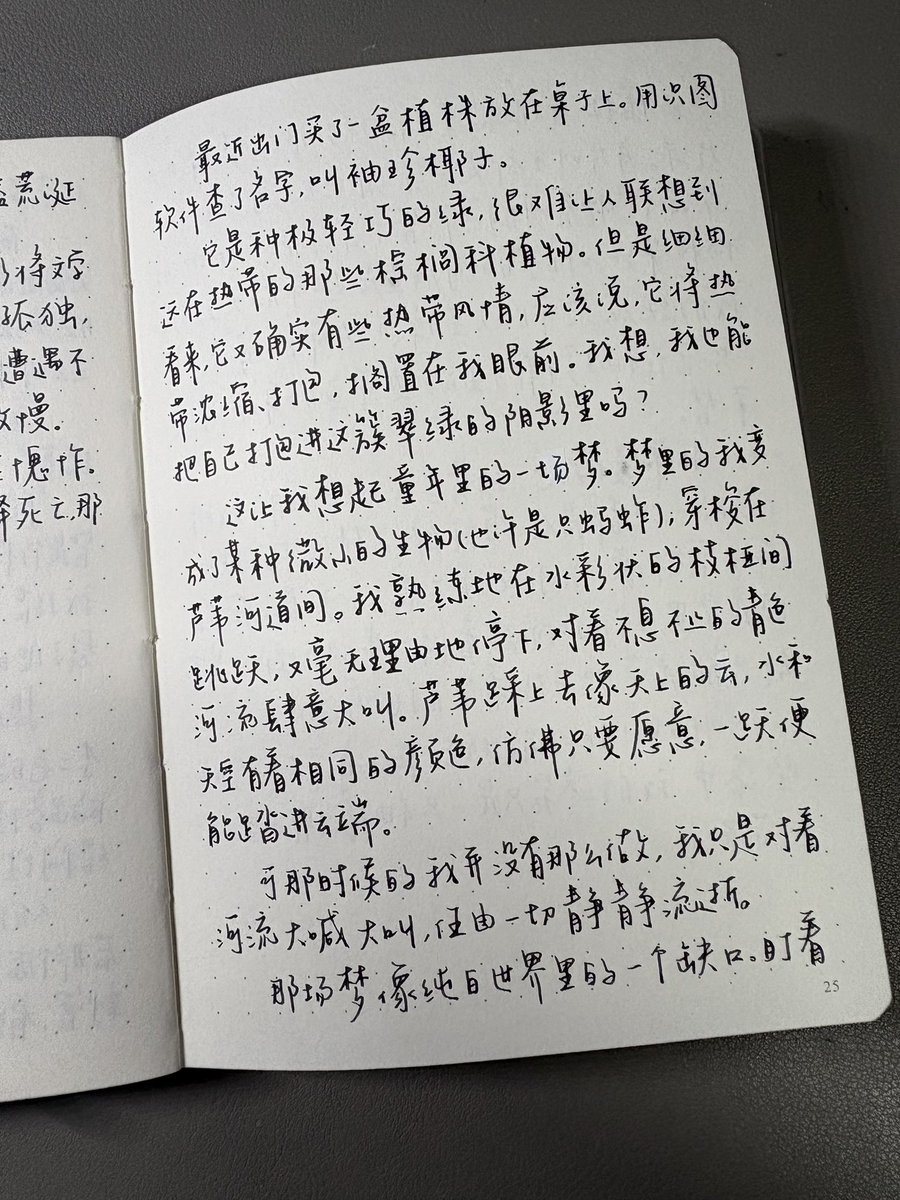 荒诞
将文字
孤独,
遭遇不
慢。
愧怍。
择死亡,那
最近出门买了一盆植株放在桌子上。用识图
软件查了名字,叫袖珍椰子。
它是种极轻巧的绿,很难让人联想到
远在热带的那些棕榈科植物。但是细细
看来,它又确实有些热带风情,应该说,它将热
带浓缩、打包,搁置在我眼前。我想,我也能
把自己打包进这簇翠绿的阴影里吗?
这让我想起童年里的一场梦。梦里的我变
成了某种微小的生物(也许是只蚂蚱),穿梭在
芦苇河道间。我熟练地在水彩状的枝桠间
跳跃,又毫无理由地停下,对着不息不止的青色
河流肆意大叫。芦苇踩上去像天上的云,水和
天空有着相同的颜色,仿佛只要愿意,一跃便
能踏进云端。
可那时候的我并没有那么做,我只是对着
河流大喊大叫,任由一切静静流逝。
那场梦像纯白世界里的一个缺口。盯着
25